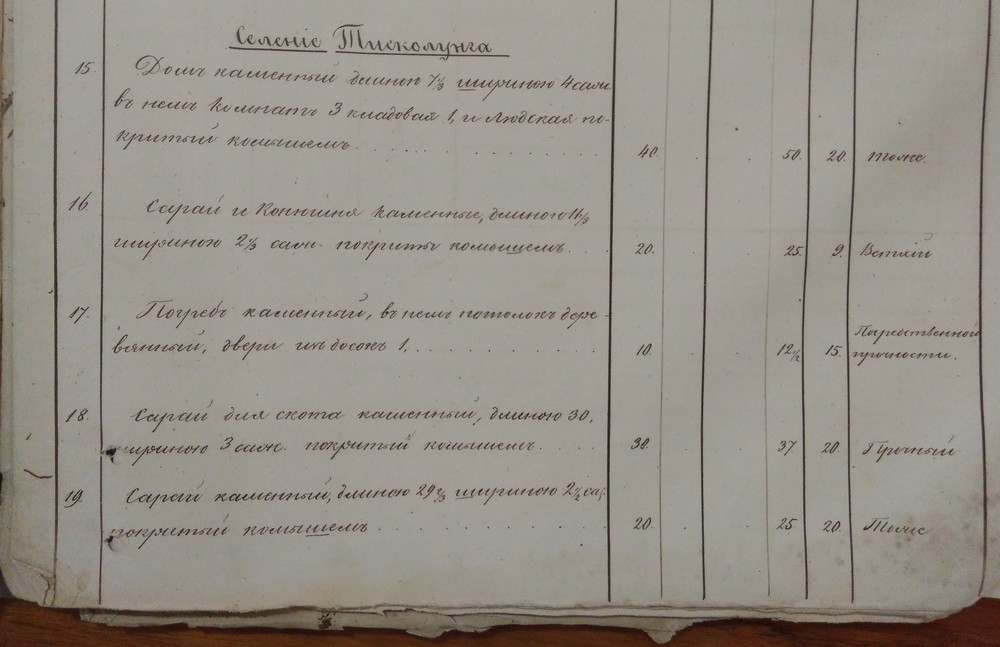 Селеніе Тисколунга
15. Домъ каменный длиною 7⅓ шириною 4 саж.
въ немъ комнатъ 3 кладовая 1, и людская по-
критый комышемъ. 40. 50. 20. тоже.
16. Сарай и Конюшня каменные, длиною 11⅓
шириною 2⅓ саж. покриты комышемъ. 20. 25. 9. Ветхій
17. Погребъ каменный, въ немъ потолокъ дере-
вянный, двери изъ досокъ 1. 10. 12½ 15. Посредственной
прочности.
18. Сарай для скота каменный, длиною 30,
шириною 3 саж. покритый комышемъ. 30. 37 20. Прочный
19. Сарай каменный, длиною 29⅔ шириною 2½ са.
покритый комышемъ 20. 25 20. Тоже